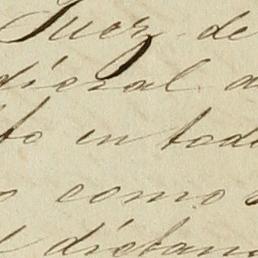 Juez de
dicial a
to en todo
o como
l dictam